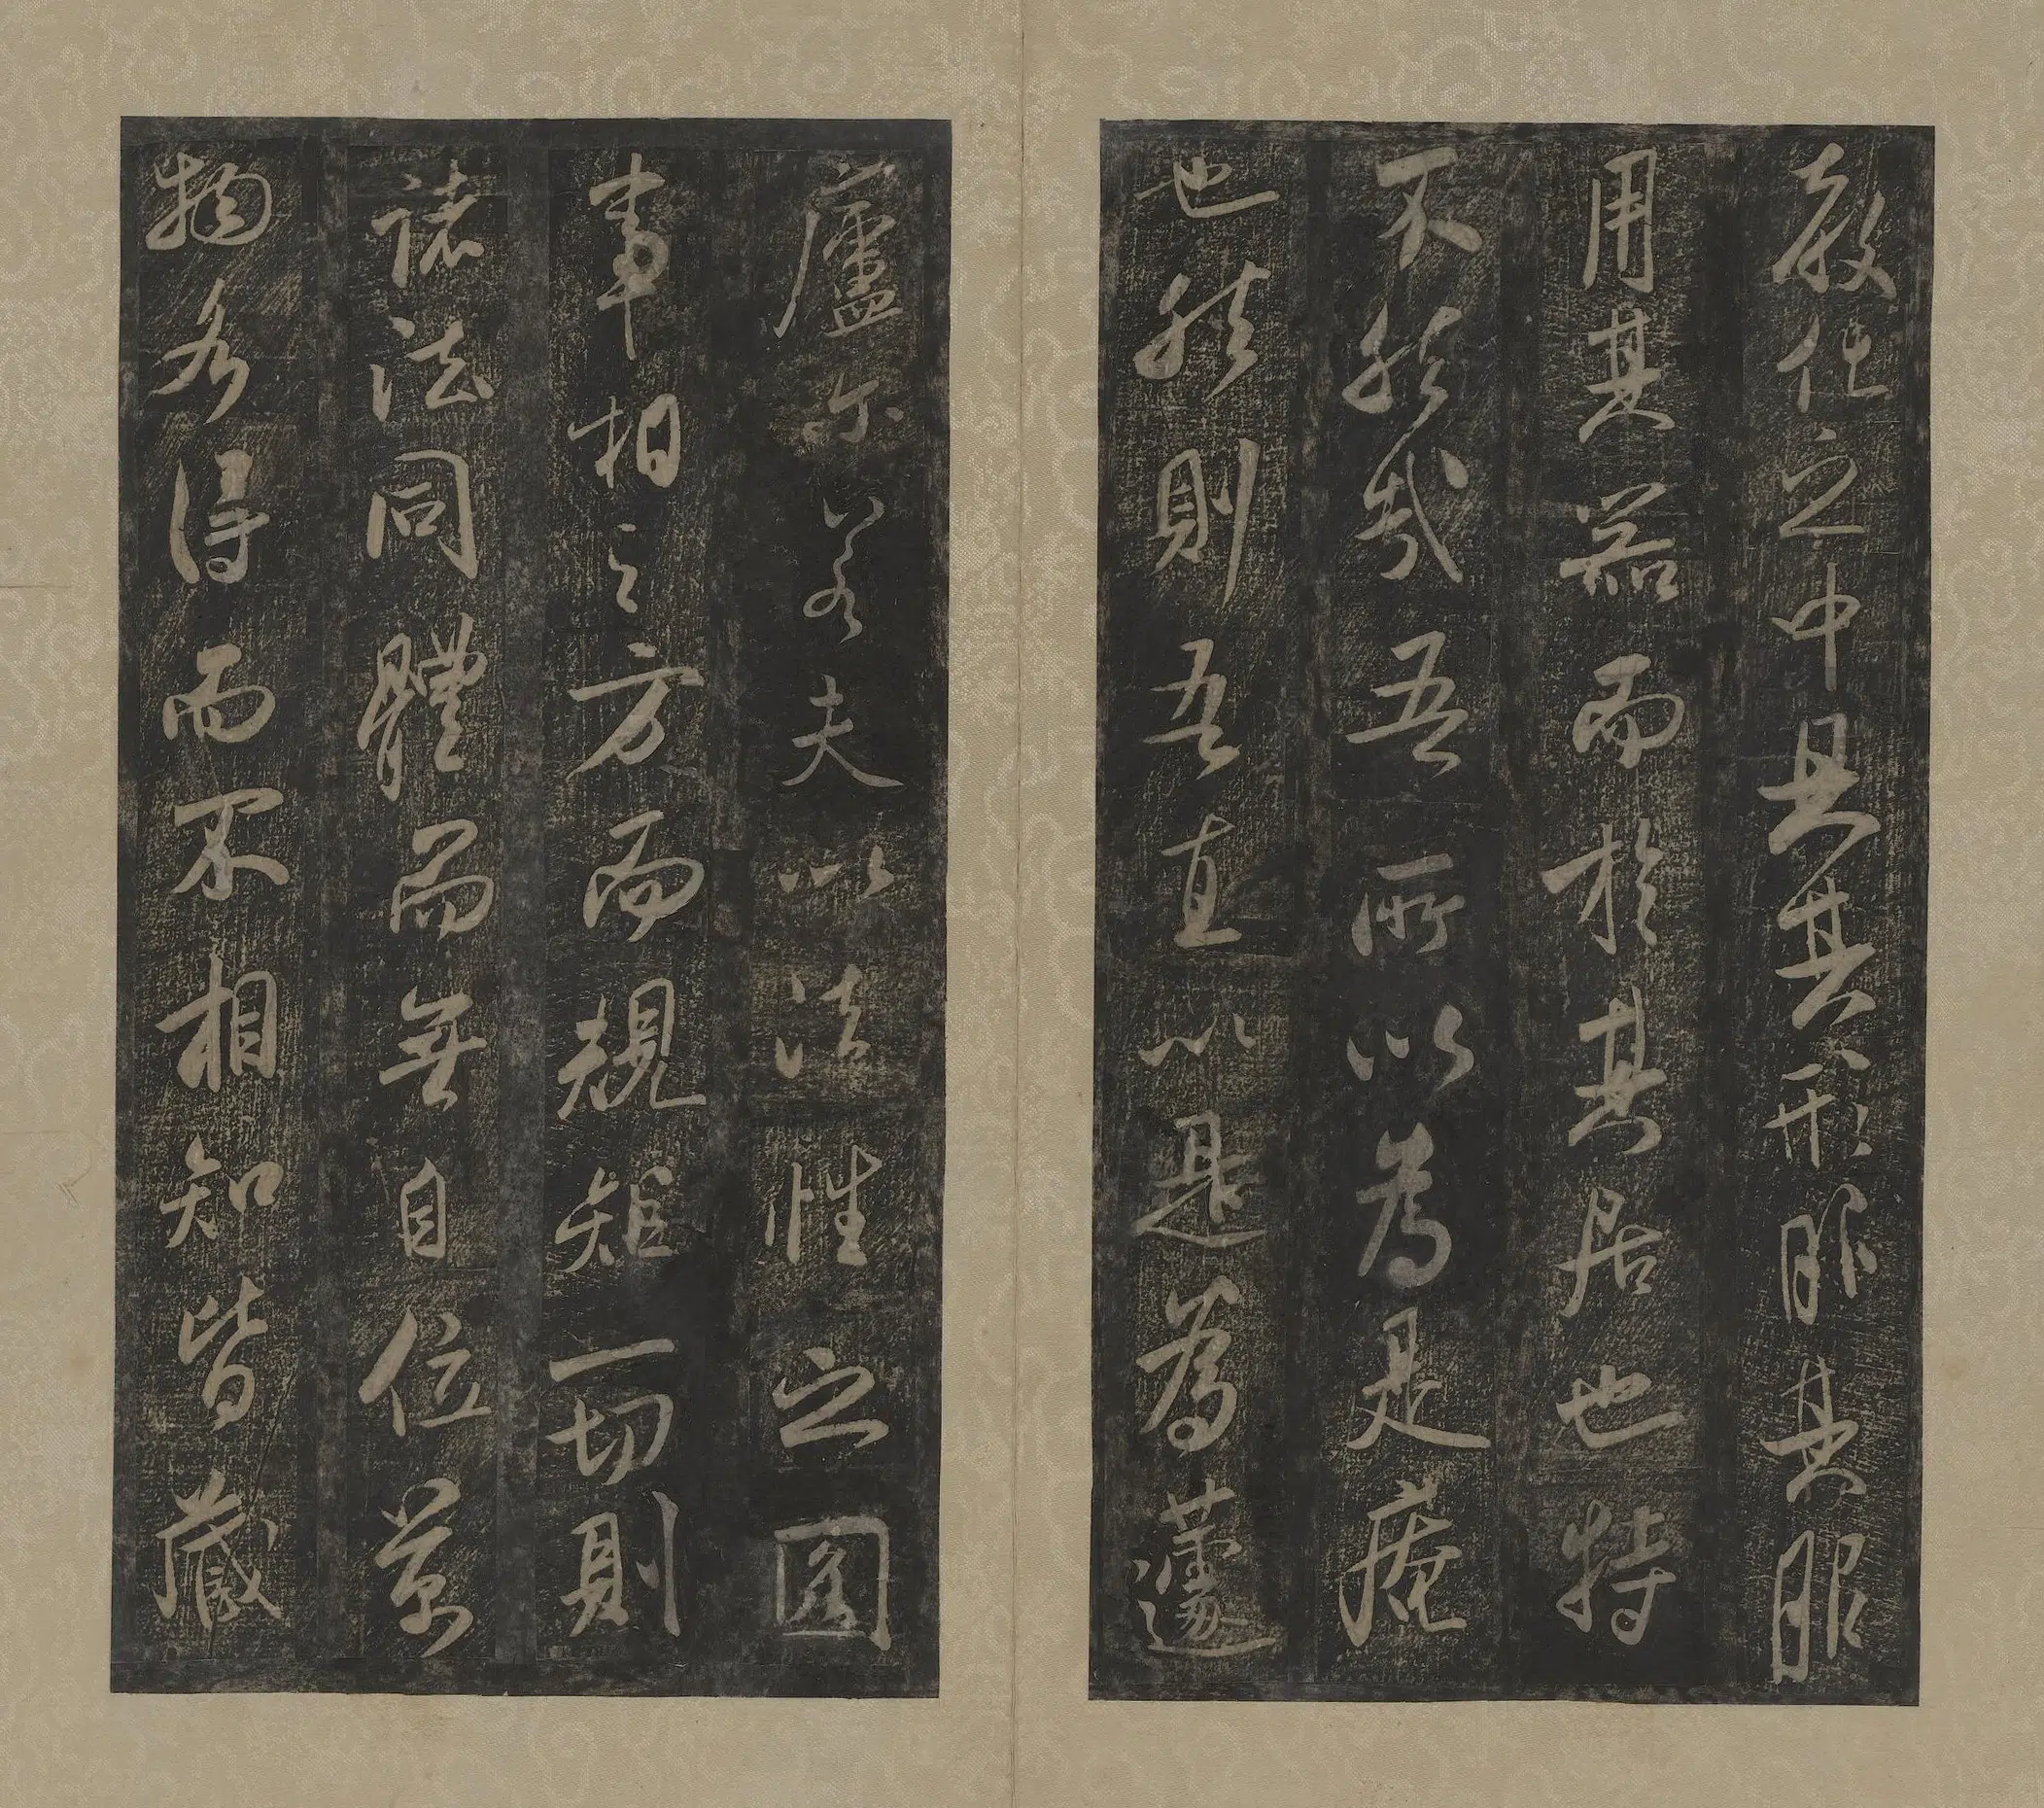 教化之中且其形服其服
用其器而於其居也特
不然哉吾所以為是菴
也然則吾直以是為蘧
廬尔若夫以法性之圆
事相之方而規矩一切則
諸法同體而無自位萬
物各得而不相知皆藏